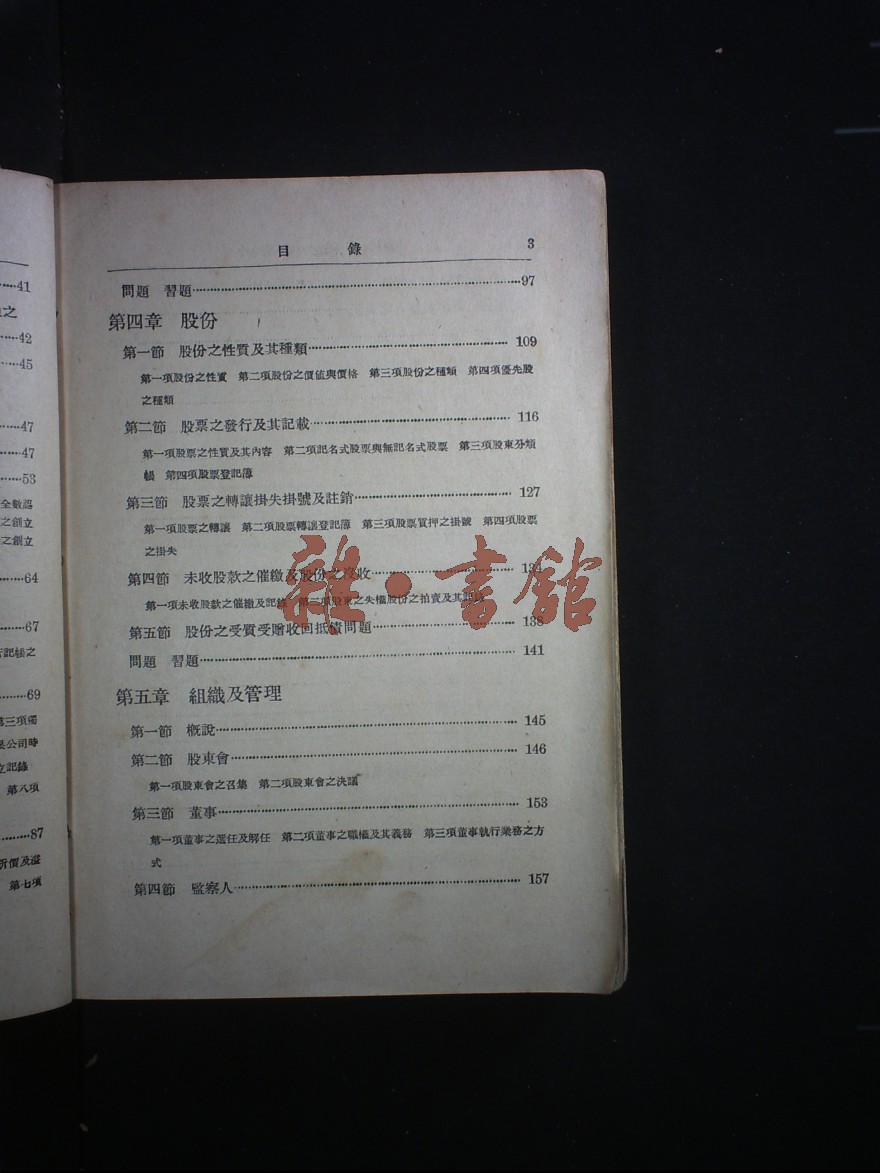 41
之
42
45
47
47
53
全數認
之創立
之創立
64
67
記帳之
69
第三項
公司時
立記錄
第八項
87
折價及溢
第七項
目錄 3
問題 習題 97
第四章 股份
第一節 股份之性質及其種類 109
第一項股份之性質 第二項股份之價值與價格 第三項股份之種類 第四項優先股
之種類
第二節 股票之發行及其記載 116
第一項股票之性質及其內容 第二項記名式股票與無記名式股票 第三項股東分類
帳 第四項股票登記簿
第三節 股票之轉讓掛失掛號及註銷 127
第一項股票之轉讓 第二項股票轉讓登記簿 第三項股票質押之掛號 第四項股票
之掛失
第四節 未收股款之催繳及股份之沒收 134
第一項未收股款之催繳及記錄 第二項股東之失權股份之拍賣及其記錄
第五節 股份之受質受贈收回抵債問題 138
問題 習題 141
第五章 組織及管理
第一節 概說 145
第二節 股東會 146
第一項股東會之召集 第二項股東會之決議
第三節 董事 153
第一項董事之選任及解任 第二項董事之職權及其義務 第三項董事執行業務之方
式
第四節 監察人 157
雜·書館